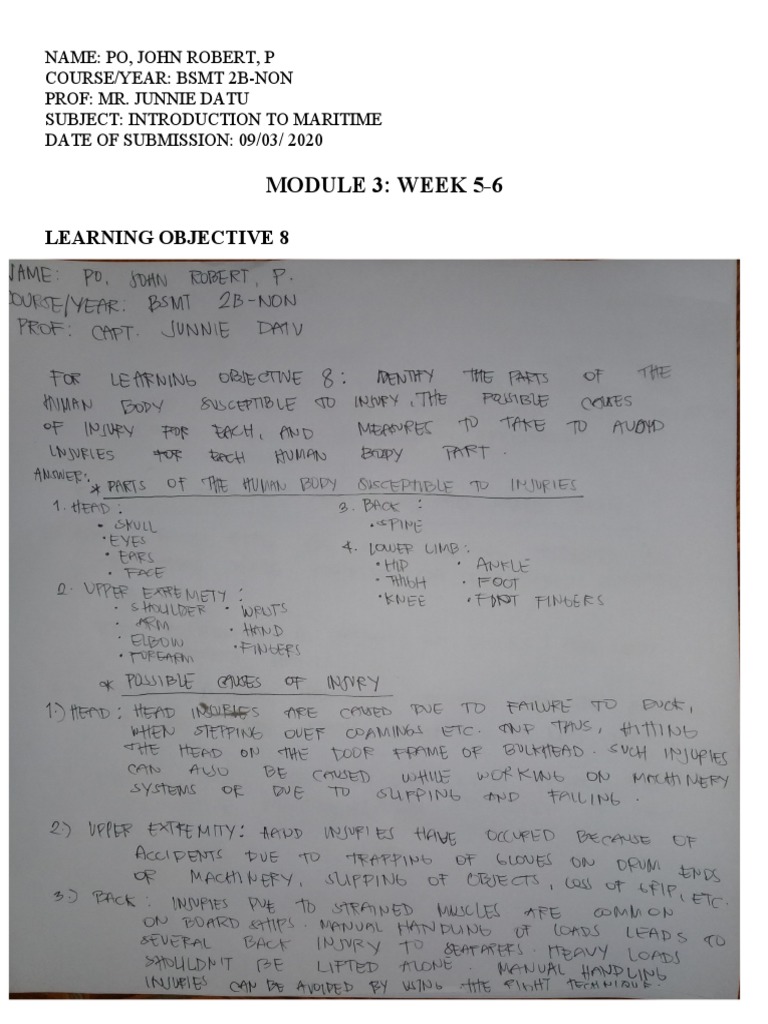 NAME: PO, JOHN ROBERT, P
COURSE/YEAR: BSMT 2B-NON
PROF: MR. JUNNIE DATU
SUBJECT: INTRODUCTION TO MARITIME
DATE OF SUBMISSION: 09/03/ 2020
MODULE 3: WEEK 5-6
LEARNING OBJECTIVE 8
NAME: PO, JOHN ROBERT, P.
COURSE/YEAR: BSMT 2B-NON
PROF: CAPT. JUNNIE DATU
FOR LEARNING OBJECTIVE 8: IDENTIFY THE PARTS OF THE
HUMAN BODY SUSCEPTIBLE TO INJURY, THE POSSIBLE
OF INJURY FOR EACH, AND MEASURES TO TAKE TO AVOID
INJURIES FOR EACH HUMAN BODY PART.
ANSWER:
* PARTS OF THE HUMAN BODY SUSCEPTIBLE TO INJURIES
1. HEAD:
• SKULL
• EYES
• EARS
• FACE
2. UPPER EXTREMETY:
• SHOULDER • WRITS
• ARM • HAND
• ELBOW • FINGERS
• FOREARM
3. BACK:
• SPINE
4. LOWER LIMB:
• HIP • ANKLE
• THIGH • FOOT
• KNEE • FOOT FINGERS
* POSSIBLE CAUSES OF INJURY
1.) HEAD: HEAD INJURIES ARE CAUSED DUE TO FAILURE TO DUCK,
WHEN STEPPING OVER COAMINGS ETC. AND THUS, HITTING
THE HEAD ON THE DOOR FRAME OR BULKHEAD. SUCH INJURIES
CAN ALSO BE CAUSED WHILE WORKING ON MACHINERY
SYSTEMS OR DUE TO SLIPPING AND FALLING.
2.) UPPER EXTREMITY: HAND INJURIES HAVE OCCURED BECAUSE OF
ACCIDENTS DUE TO TRAPPING OF GLOVES ON DRUM ENDS
OR MACHINERY, SLIPPING OF OBJECTS, LOSS OF GRIP, ETC.
3.) BACK: INJURIES DUE TO STRAINED MUSCLES ARE COMMON
ON BOARD SHIPS. MANUAL HANDLING OF LOADS LEADS TO
SEVERAL BACK INJURY TO SEAFARERS. HEAVY LOADS
SHOULDN'T BE LIFTED ALONE. MANUAL HANDLING
INJURIES CAN BE AVOIDED BY USING THE RIGHT TECHNIQUE.